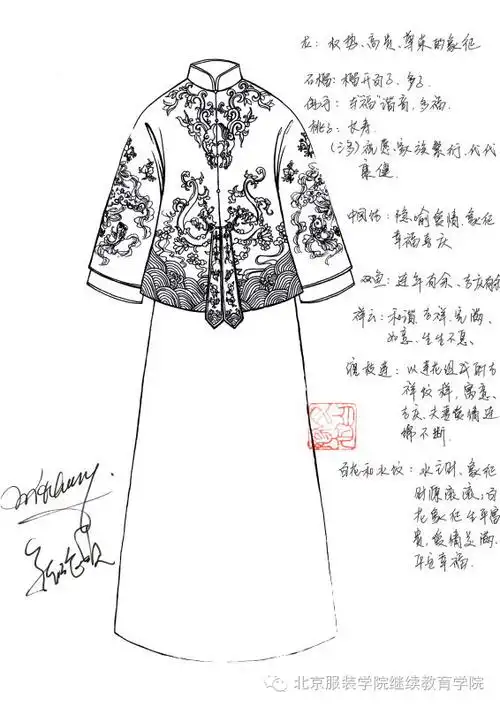 龙:权势、高贵、尊荣的象征
石榴:榴开百子、多子
佛手:与"福"谐音,多福
桃子:长寿
(三多)祝愿家族繁衍、代代
康健
中国结:隐喻爱情、象征
幸福吉庆
双鱼:连年有余、吉庆有余
祥云:和谐、吉祥、完满、
如意、生生不息、
缠枝莲:以莲花组成的吉
祥纹样,寓意
吉庆、夫妻爱情连
绵不断.
百花和水纹:水主财、象征
财源滚滚、百
花象征生平富
贵,爱情美满、
幸福.
北京服装学院继续教育学院